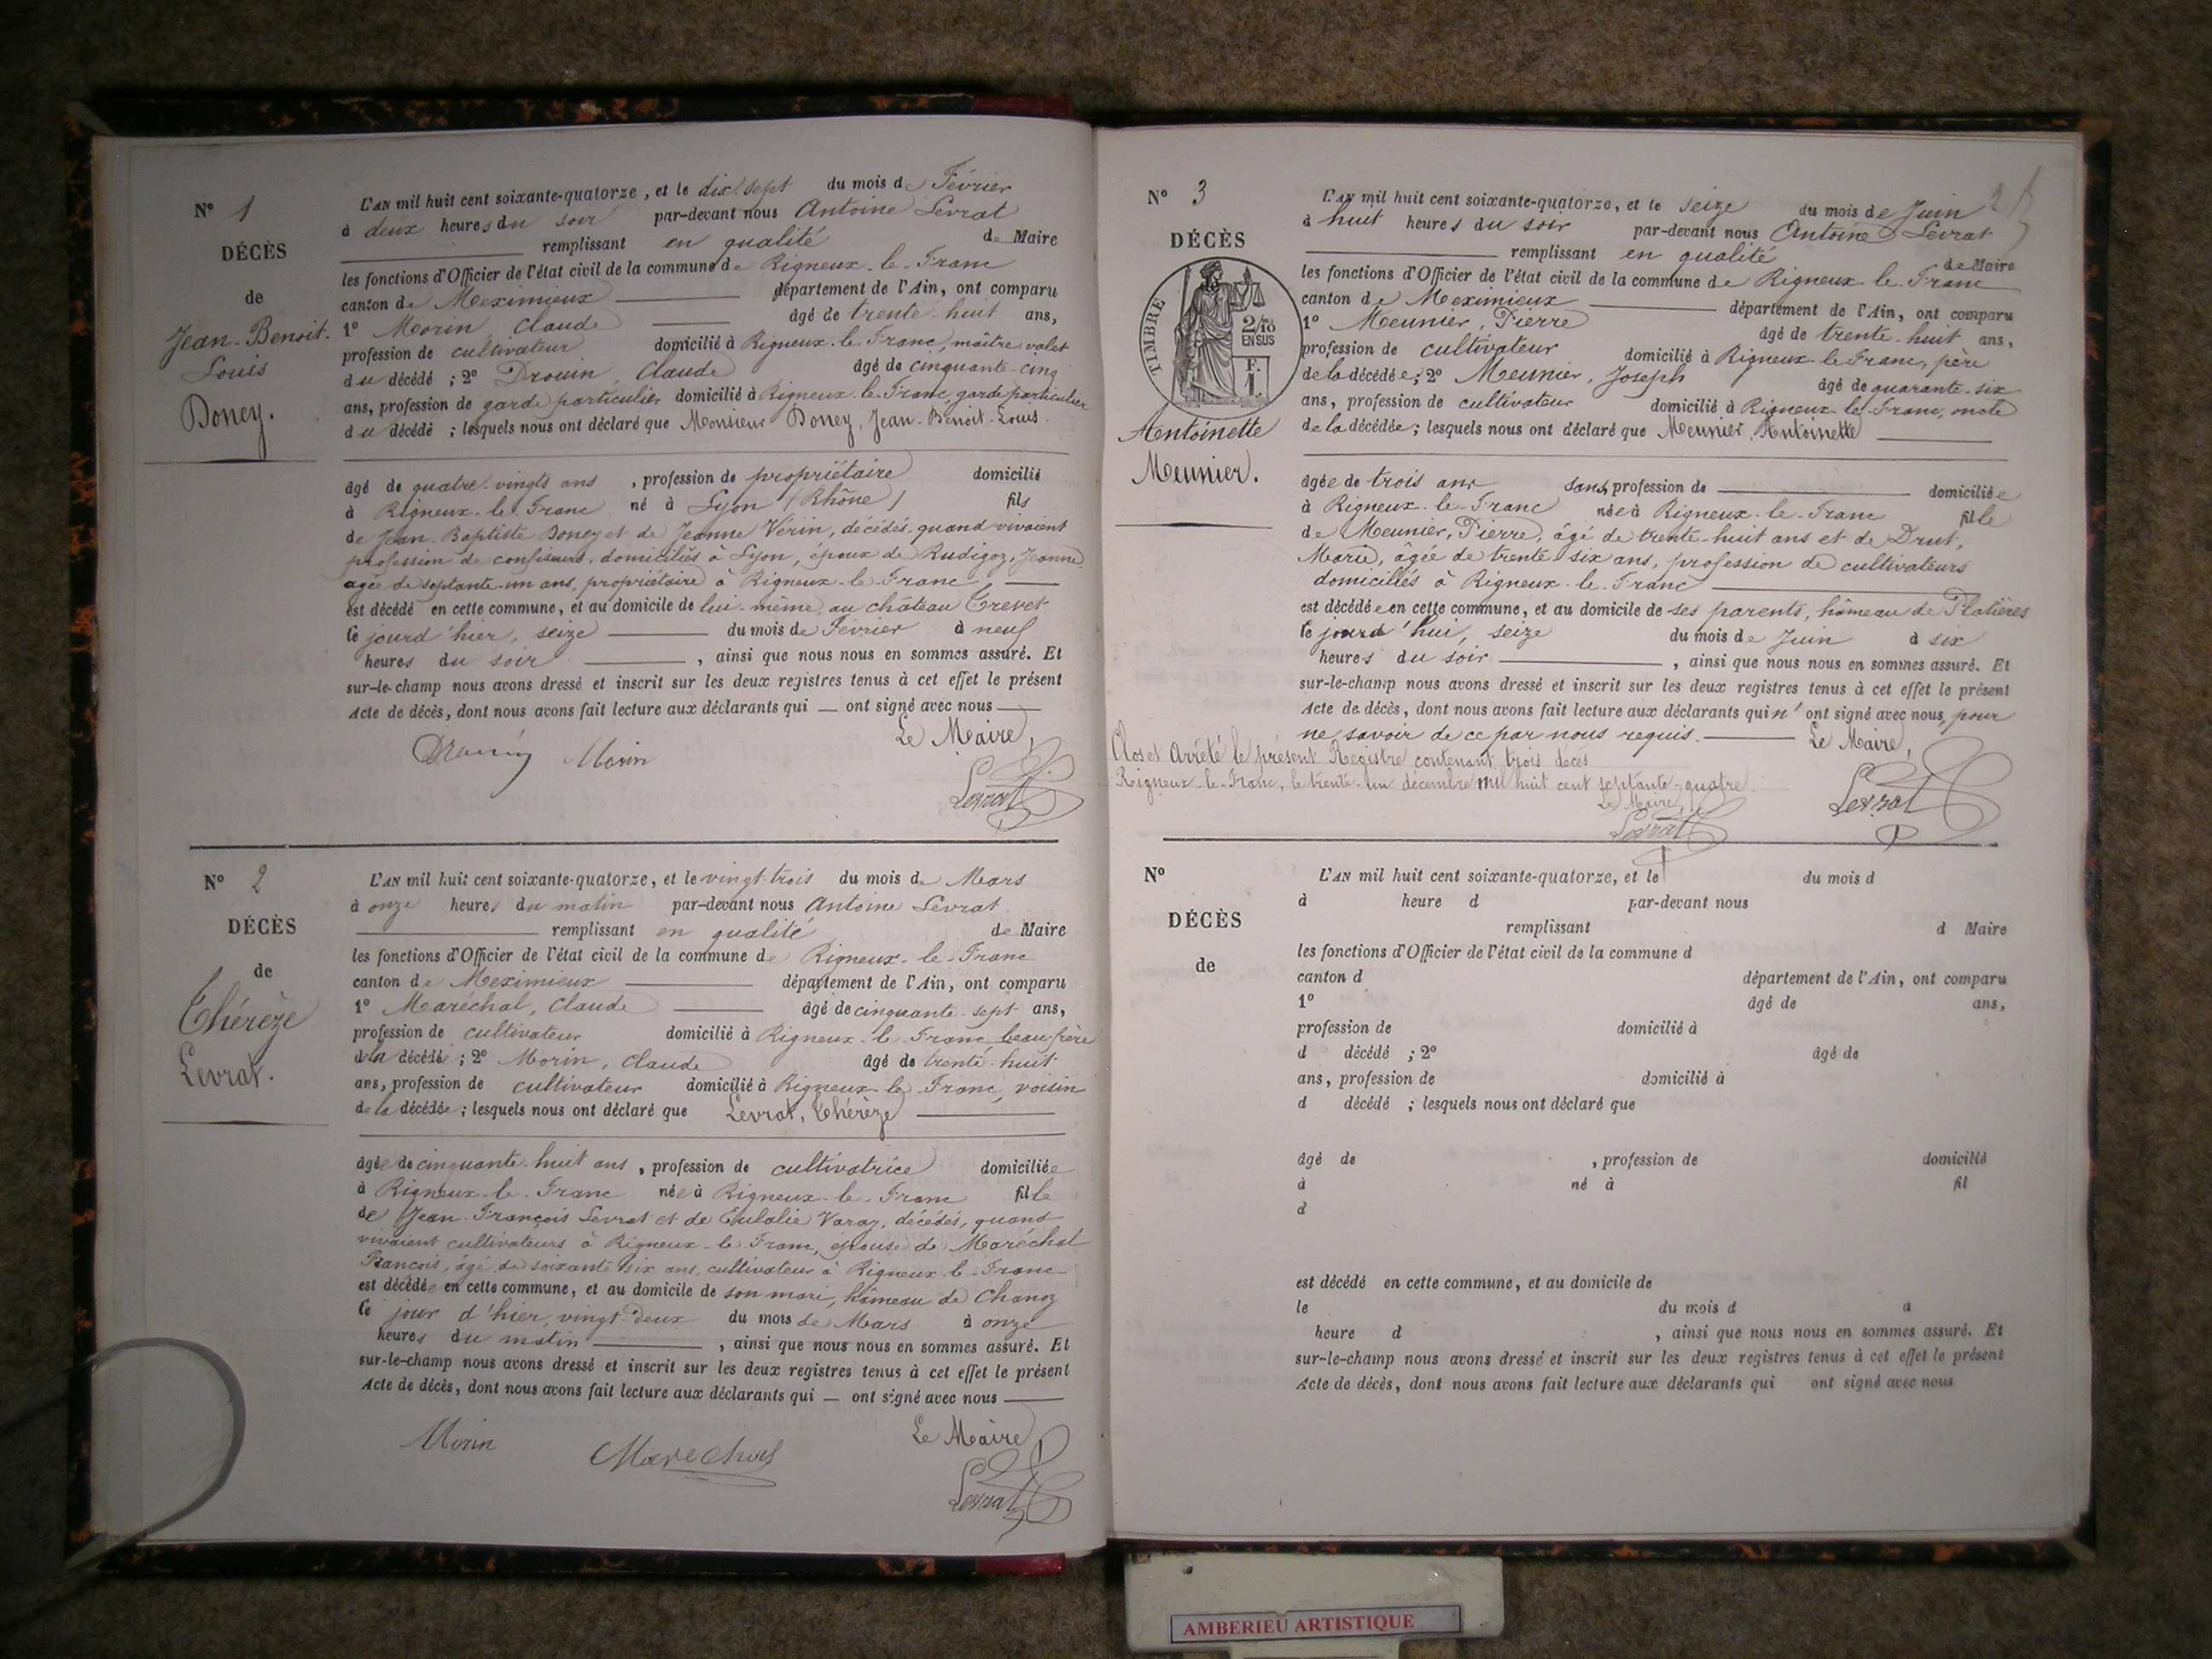 N° 1
DÉCÈS
de
Jean-Benoit-
Louis
Doney.
L'AN mil huit cent soixante-quatorze, et le dix-sept du mois de Février
à deux heures du soir par-devant nous Antoine Levrat
remplissant en qualité de Maire
les fonctions d'Officier de l'état civil de la commune de Rigneux-le-Franc
canton de Meximieux département de l'Ain, ont comparu
1° Morin, Claude âgé de trente-huit ans,
profession de cultivateur domicilié à Rigneux-le-Franc, maître valet
du décédé ; 2° Drouin, Claude âgé de cinquante-cinq
ans, profession de garde particulier domicilié à Rigneux-le-Franc, garde particulier
du décédé ; lesquels nous ont déclaré que Monsieur Doney, Jean-Benoit-Louis
âgé de quatre-vingts ans , profession de propriétaire domicilié
à Rigneux-le-Franc né à Lyon (Rhône) fils
de Jean-Baptiste Doney et de Jeanne Vérin, décédés, quand vivaient
profession de confiseurs, domiciliés à Lyon, époux de Rudigoz, Jeanne
agée de septante-un ans, propriétaire à Rigneux-le-Franc,
est décédé en cette commune, et au domicile de lui-même, au château Crevet
le jourd'hier, seize du mois de Février à neuf
heures du soir , ainsi que nous nous en sommes assuré. Et
sur-le-champ nous avons dressé et inscrit sur les deux registres tenus à cet effet le présent
Acte de décès, dont nous avons fait lecture aux déclarants qui — ont signé avec nous
Le Maire,
Drouin Morin
Levrat
N° 2
DÉCÈS
de
Thérèze
Levrat.
L'AN mil huit cent soixante-quatorze, et le vingt-trois du mois de Mars
à onze heures du matin par-devant nous Antoine Levrat
remplissant en qualité de Maire
les fonctions d'Officier de l'état civil de la commune de Rigneux-le-Franc
canton de Meximieux département de l'Ain, ont comparu
1° Maréchal, Claude âgé de cinquante-sept ans,
profession de cultivateur domicilié à Rigneux-le-Franc, beau-frère
de la décédé ; 2° Morin, Claude âgé de trente-huit
ans, profession de cultivateur domicilié à Rigneux-le-Franc, voisin
de la décédée ; lesquels nous ont déclaré que Levrat, Thérèze
âgée de cinquante-huit ans , profession de cultivatrice domiciliée
à Rigneux-le-Franc née à Rigneux-le-Franc fille
de Jean-François Levrat et de Eulalie Varay, décédés, quand
vivaient cultivateurs à Rigneux-le-Franc, épouse de Maréchal
François, âgé de soixante-six ans, cultivateur à Rigneux-le-Franc
est décédée en cette commune, et au domicile de son mari, hâmeau de Chanoz
le jour d'hier, vingt-deux du mois de Mars à onze
heures du matin , ainsi que nous nous en sommes assuré. Et
sur-le-champ nous avons dressé et inscrit sur les deux registres tenus à cet effet le présent
Acte de décès, dont nous avons fait lecture aux déclarants qui — ont signé avec nous
Le Maire
Morin Marechal
Levrat
N° 3
DÉCÈS
TIMBRE
2/10
EN SUS
F.
1.
Antoinette
Meunier.
L'AN mil huit cent soixante-quatorze, et le seize du mois de Juin
à huit heures du soir par-devant nous Antoine Levrat
remplissant en qualité de Maire
les fonctions d'Officier de l'état civil de la commune de Rigneux-le-Franc
canton de Meximieux département de l'Ain, ont comparu
1° Meunier, Pierre âgé de trente-huit ans,
profession de cultivateur domicilié à Rigneux-le-Franc, père
de la décédée ; 2° Meunier, Joseph âgé de quarante-six
ans, profession de cultivateur domicilié à Rigneux-le-Franc, oncle
de la décédée ; lesquels nous ont déclaré que Meunier, Antoinette
âgée de trois ans sans profession de domiciliée
à Rigneux-le-Franc née à Rigneux-le-Franc fille
de Meunier, Pierre, âgé de trente-huit ans et de Drut,
Marie, âgée de trente-six ans, profession de cultivateurs
domiciliés à Rigneux-le-Franc
est décédée en cette commune, et au domicile de ses parents, hâmeau de Platières
le jourd'hui, seize du mois de Juin à six
heures du soir , ainsi que nous nous en sommes assuré. Et
sur-le-champ nous avons dressé et inscrit sur les deux registres tenus à cet effet le présent
Acte de décès, dont nous avons fait lecture aux déclarants qui n'ont signé avec nous, pour
ne savoir de ce par nous requis. Le Maire,
Levrat
Clos et Arrêté le présent Registre contenant trois décès
Rigneux-le-Franc, le trente-un décembre mil huit cent septante-quatre
Le Maire,
Levrat
N°
DÉCÈS
de
L'AN mil huit cent soixante-quatorze, et le du mois d
à heure d par-devant nous
remplissant d Maire
les fonctions d'Officier de l'état civil de la commune d
canton d département de l'Ain, ont comparu
1° âgé de ans,
profession de domicilié à
d décédé ; 2° âgé de
ans, profession de domicilié à
d décédé ; lesquels nous ont déclaré que
âgé de , profession de domicilié
à né à fil
d
est décédé en cette commune, et au domicile de
le du mois d à
heure d , ainsi que nous nous en sommes assuré. Et
sur-le-champ nous avons dressé et inscrit sur les deux registres tenus à cet effet le présent
Acte de décès, dont nous avons fait lecture aux déclarants qui ont signé avec nous
AMBERIEU ARTISTIQUE